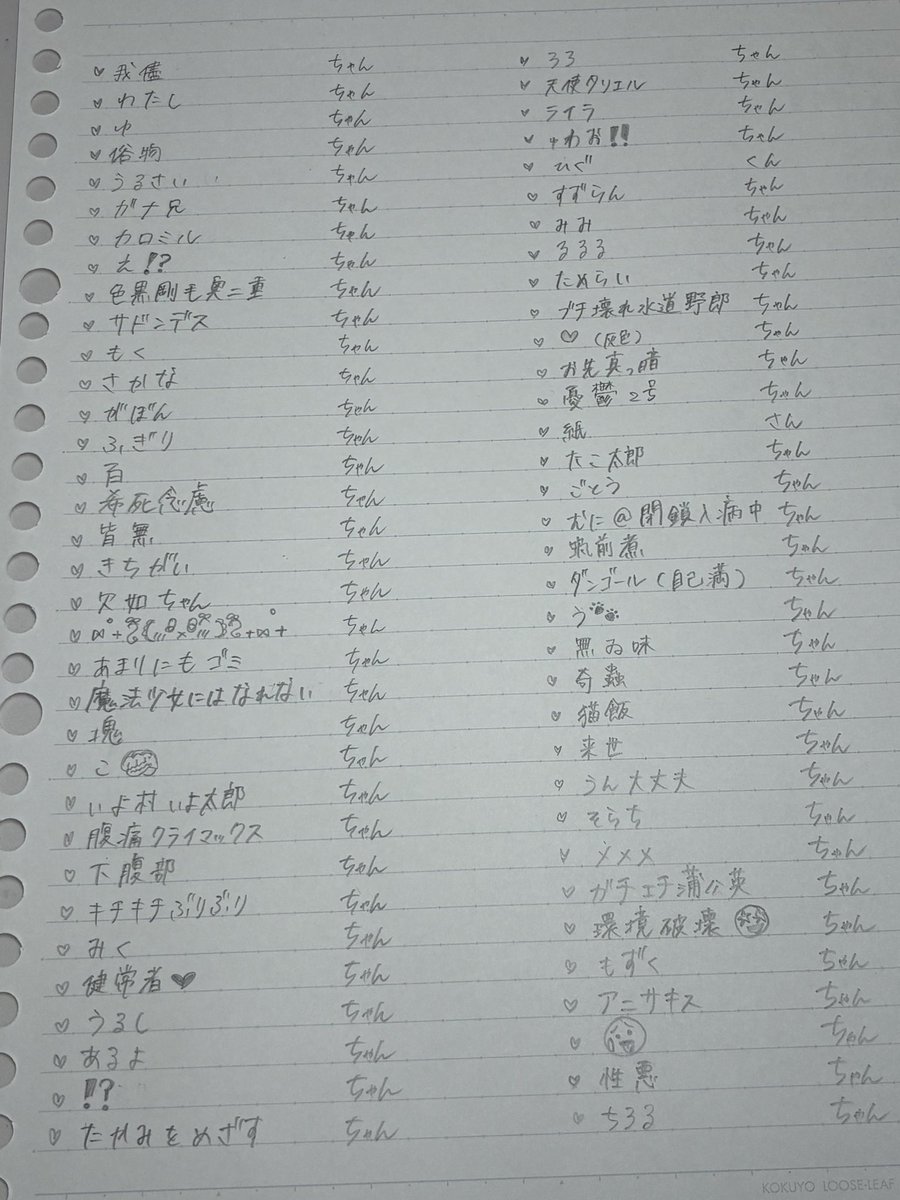 ♡ 我儘 ちゃん
♡ わたし ちゃん
♡ ゆ ちゃん
♡ 俗物 ちゃん
♡ うるさい ちゃん
♡ ガナ兄 ちゃん
♡ カロミル ちゃん
♡ え!? ちゃん
♡ 色黒剛毛奥二重 ちゃん
♡ サドンデス ちゃん
♡ もく ちゃん
♡ さかな ちゃん
♡ がぼん ちゃん
♡ ふぎり ちゃん
♡ 百 ちゃん
♡ 希死念慮 ちゃん
♡ 皆無 ちゃん
♡ きちがい ちゃん
♡ 欠如ちゃん ちゃん
♡ ちゃん
♡ あまりにもゴミ ちゃん
♡ 魔法少女にはなれない ちゃん
♡ 塊 ちゃん
♡ こ ちゃん
♡ いよ村いよ太郎 ちゃん
♡ 腹痛クライマックス ちゃん
♡ 下腹部 ちゃん
♡ キチキチぶりぶり ちゃん
♡ みく ちゃん
♡ 健常者♥ ちゃん
♡ うるし ちゃん
♡ あるよ ちゃん
♡ !? ちゃん
♡ たやみをめざす ちゃん
♡ るる ちゃん
♡ 天使タリエル ちゃん
♡ ライラ ちゃん
♡ ゎお!! ちゃん
♡ ひぐ くん
♡ すずらん ちゃん
♡ みみ ちゃん
♡ るるる ちゃん
♡ ためらい ちゃん
♡ ブチ壊れ水道野郎 ちゃん
♡ ♡(灰色) ちゃん
♡ お先真っ暗 ちゃん
♡ 憂鬱2号 ちゃん
♡ 紙 さん
♡ たこ太郎 ちゃん
♡ ごとう ちゃん
♡ むに@閉鎖入病中 ちゃん
♡ 前煮 ちゃん
♡ ダンゴール(自己満) ちゃん
♡ う🐾 ちゃん
♡ 無ゐ味 ちゃん
♡ 奇蟲 ちゃん
♡ 猫飯 ちゃん
♡ 来世 ちゃん
♡ うん大丈夫 ちゃん
♡ そらち ちゃん
♡ メメメ ちゃん
♡ ガチエチ蒲公英 ちゃん
♡ 環境破壊 ちゃん
♡ もずく ちゃん
♡ アニサキス ちゃん
♡ 😰 ちゃん
♡ 性悪 ちゃん
♡ ちるる ちゃん
KOKUYO LOOSE-LEAF